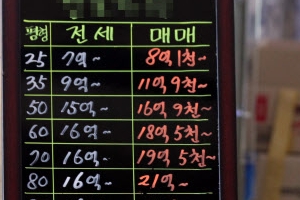 평형 전세 매매
25 7억~ 8억1천~
35 9억~ 11억 9천~
50 15억~ 16억 9천~
60 16억~ 18억 5천~
70 16억~ 19억 5천~
80 16억~ 21억~